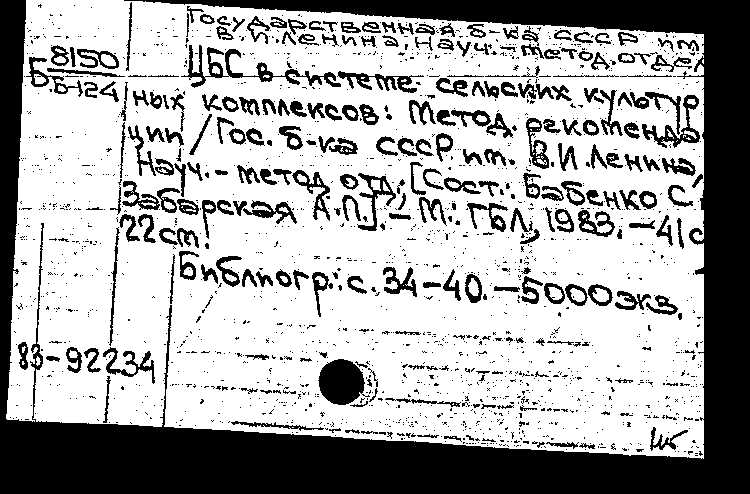 Государственная б-ка СССР им.
В.И.Ленина. Науч.-метод. отдел
Б 8150
Б-124
ЦБС в системе сельских культур
ных комплексов: Метод. рекоменда
ции / Гос. б-ка СССР им. В.И.Ленина,
Науч.-метод отд.; [Сост.: Бабенко С.
Забарская А.П.]. – М.: ГБЛ, 1983. – 41 с
22 см.
Библиогр.: с. 34-40. – 5000 экз.
83-92234